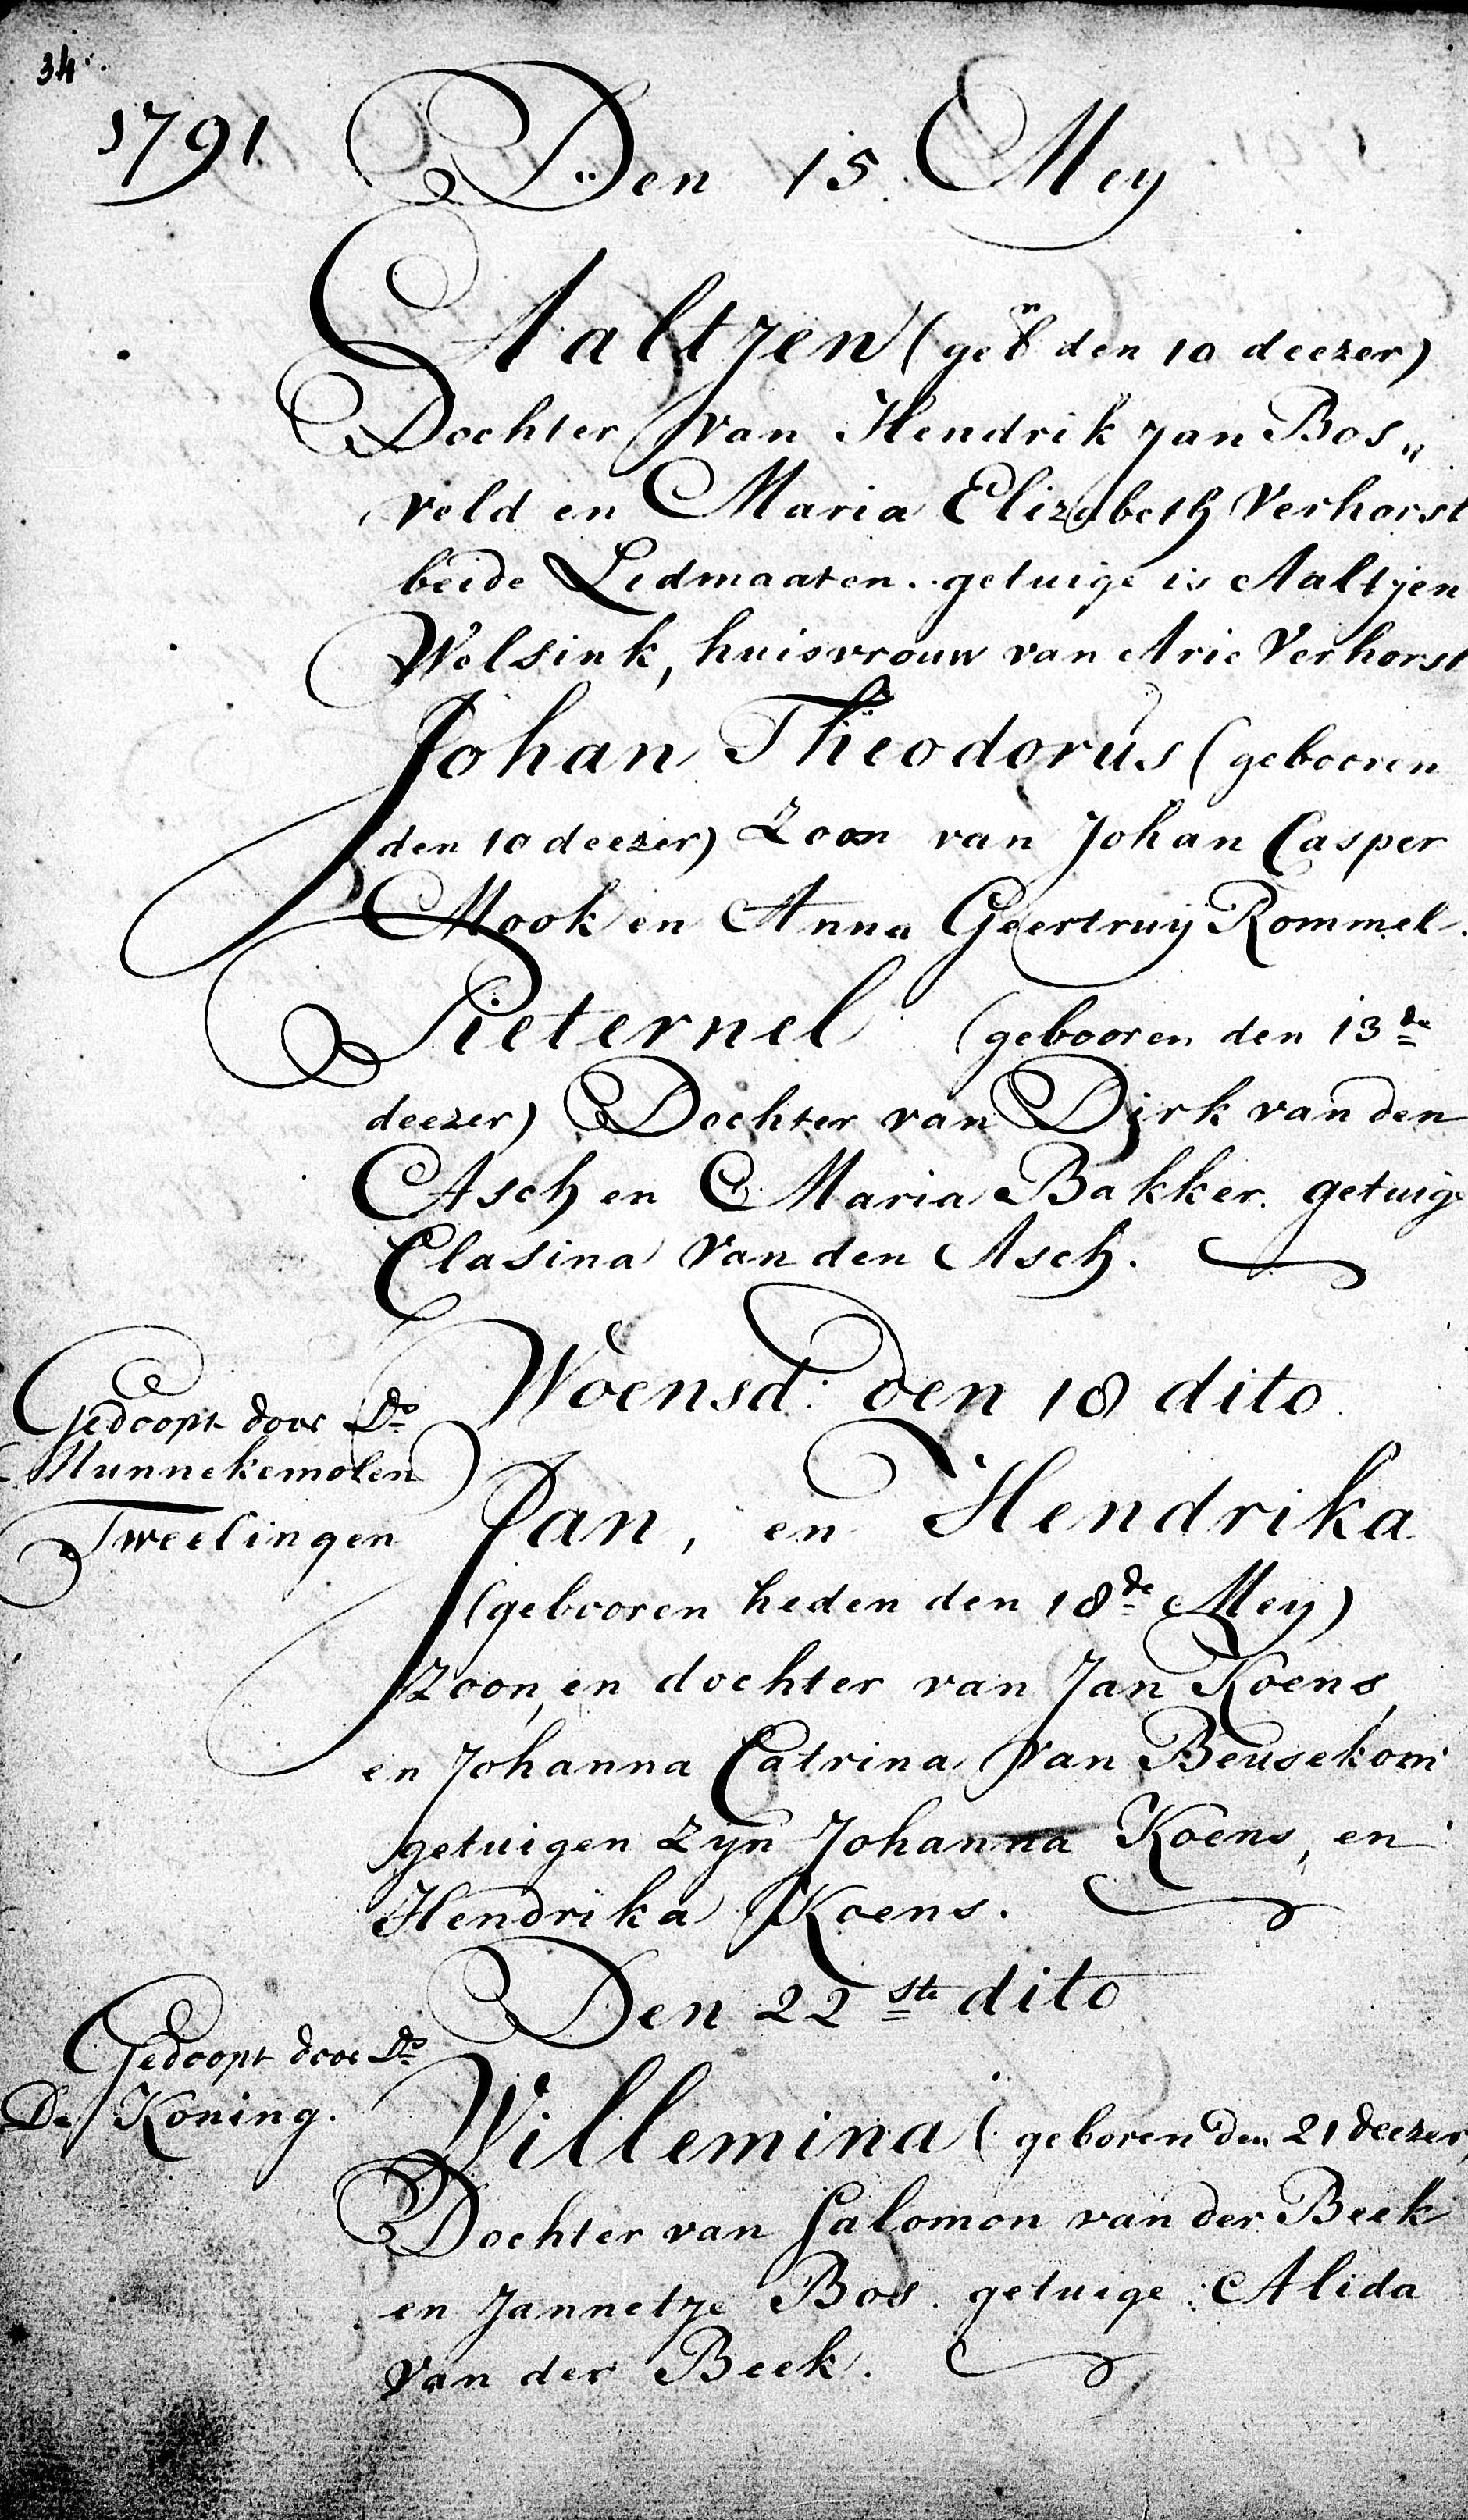 34.
1791 Den 15. Mey
Aaltjen (gebn den 10 deezer)
Dochter van Hendrik Jan Bos„
veld en Maria Elizabeth Verhorst
beide Ledmaaten. getuige is Aaltjen
Welsink, huisvrouw van Arie Verhorst
Johan Theodorus (gebooren
den 10 deezer) Zoon van Johan Casper
Mook en Anna Geertruij Rommel.
Pieternel (gebooren den 13de
deezer) Dochter van Dirk van den
Asch en Maria Bakker. getuige
Clasina van den Asch.
Woensd: den 18 dito
Gedoopt door Do
Munnekemolen
Tweelingen
Jan, en Hendrika
(gebooren heden den 18de Mey)
Zoon, en dochter van Jan Koens,
en Johanna Catrina van Beusekom
getuigen zyn Johanna Koens, en
Hendrika Koens.
Den 22ste dito
Gedoopt door Do
De Koning.
Willemina (geboren den 21 deezer,
Dochter van Salomon van der Beek
en Jannetje Bos. getuige: Alida
van der Beek.